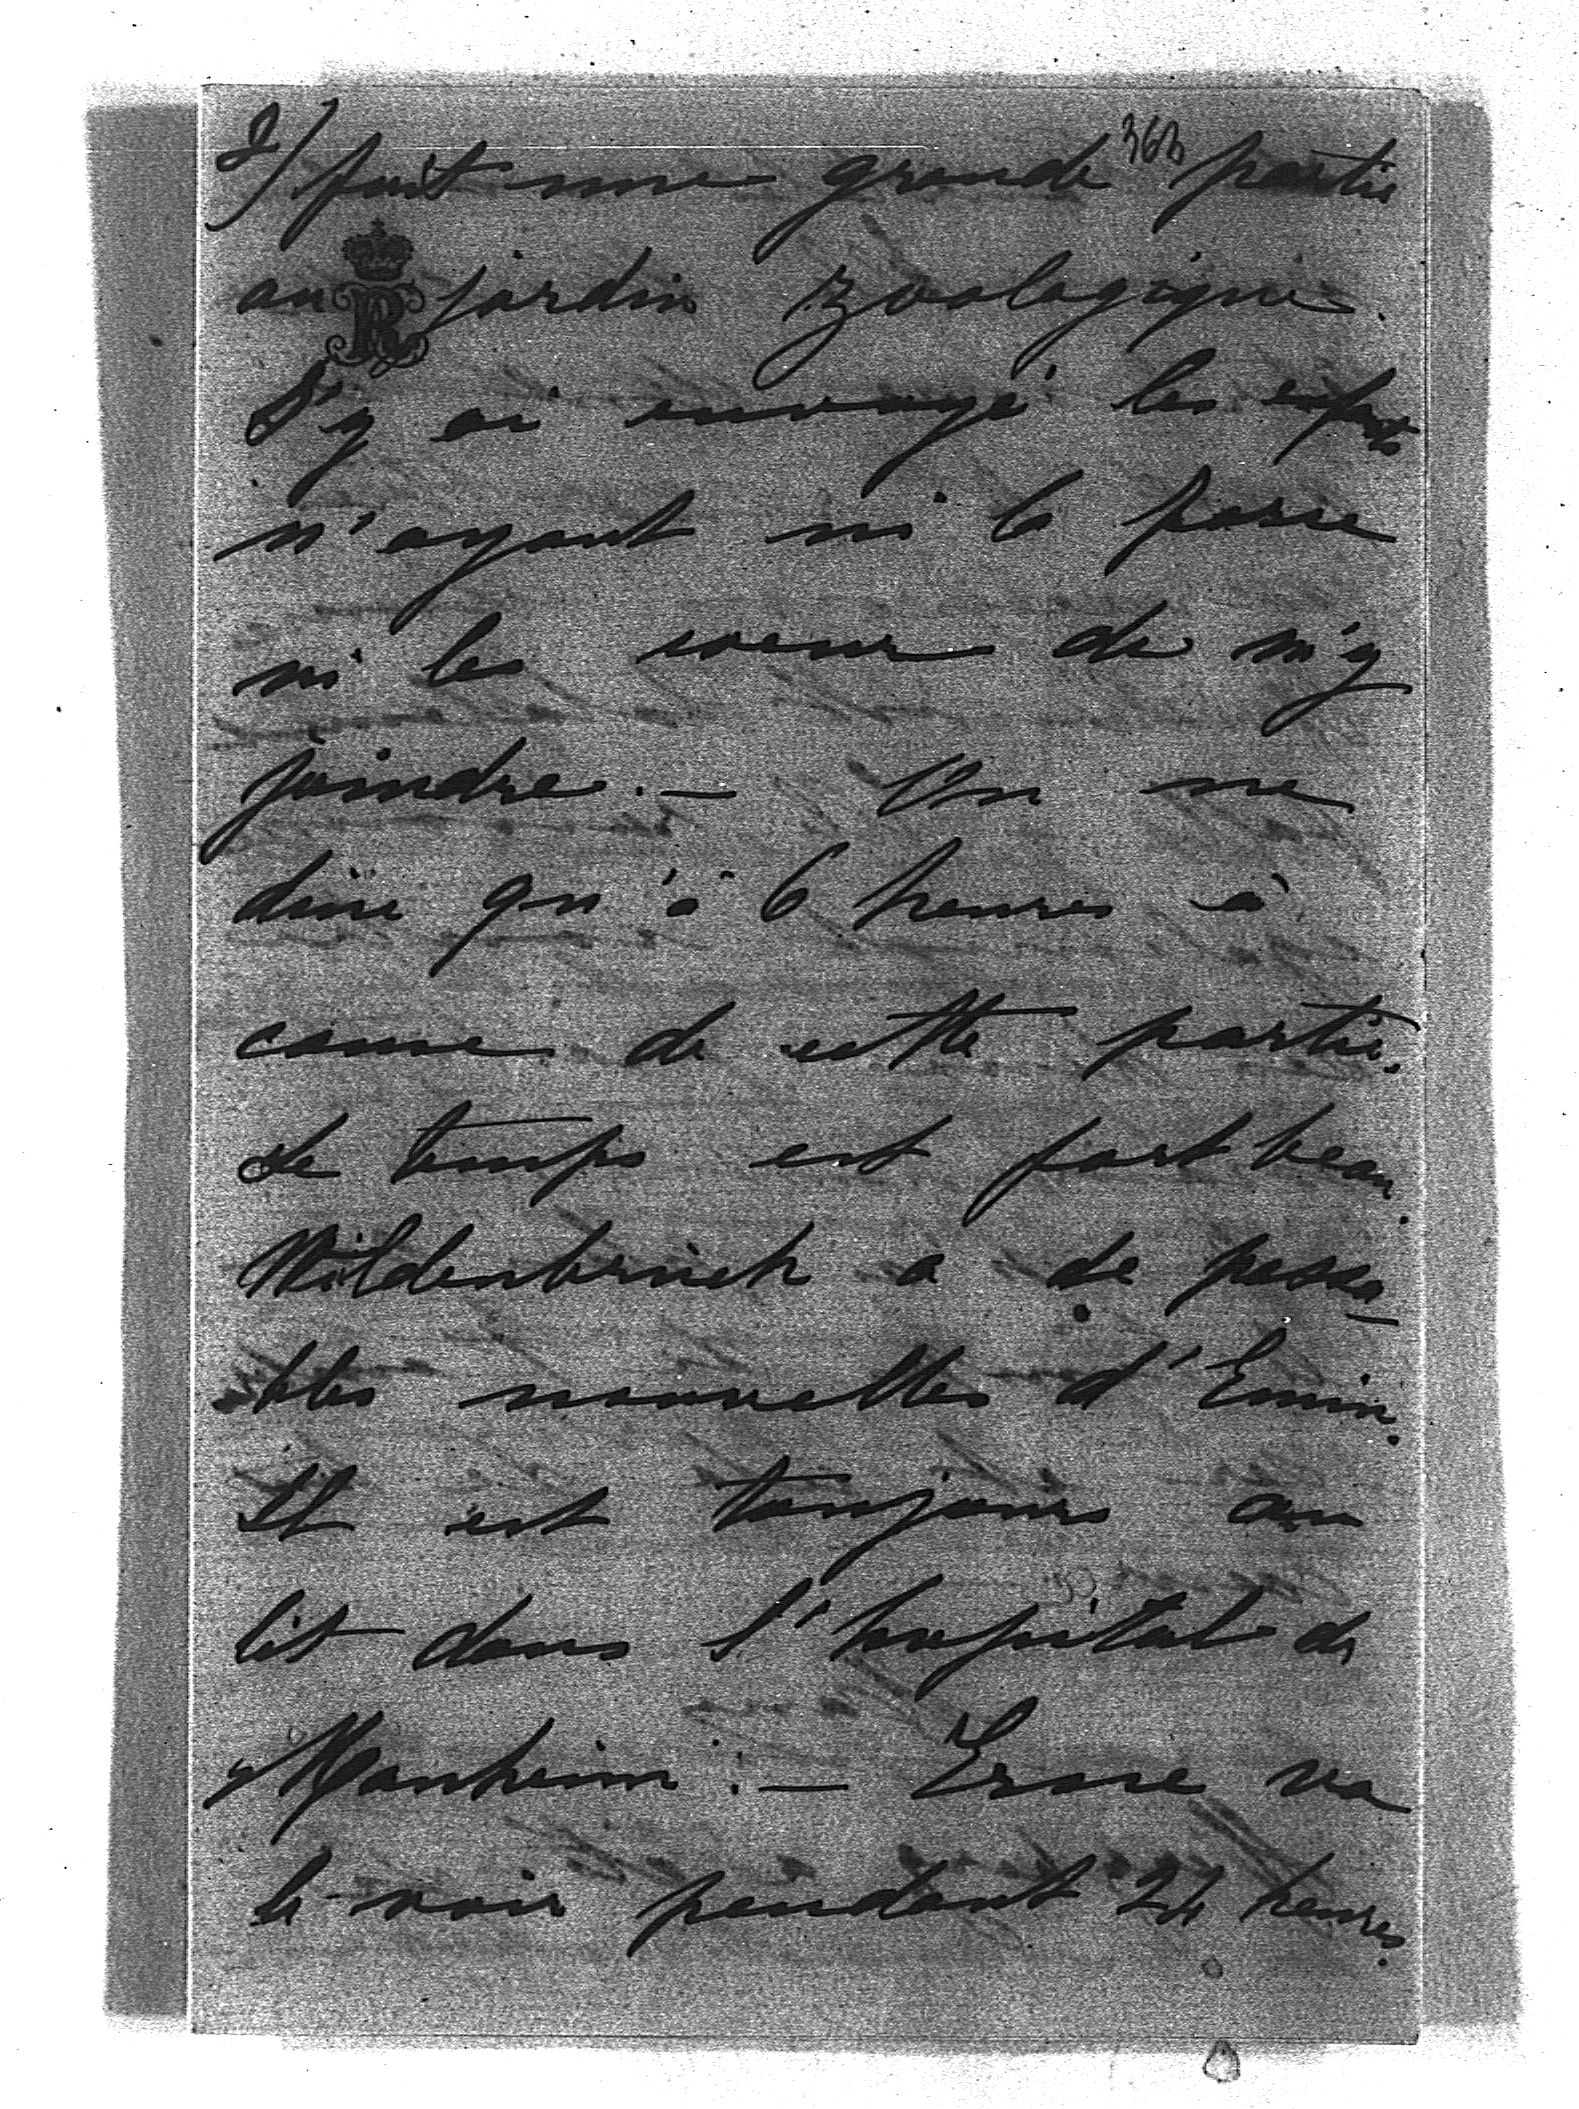 2) fait une grande 363 partie
au jardin zoologique.
J'y ai envoyé les enfants
n'ayant ni la force
ni le coeur de m'y
joindre. — On ne
dine qu'à 6 heures à
cause de cette partie.
Le temps est fort beau.
Wildenbruch a de passa-
bles nouvelles d'Emin.
Il est toujours au
lit dans l'hopital de
Manheim. — Ernre va
le voir pendant 24 heures.